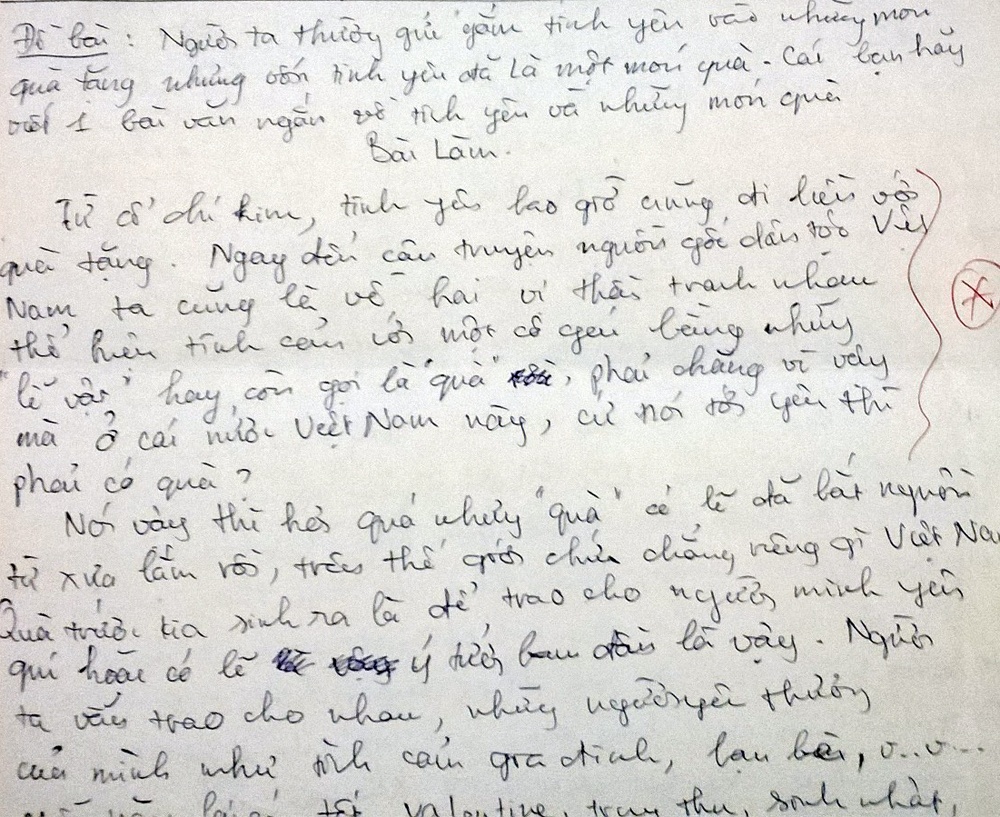 Đề bài: Người ta thường gửi gắm tình yêu vào những món
quà tặng nhưng vốn tình yêu đã là một món quà. Các bạn hãy
viết 1 bài văn ngắn về tình yêu và những món quà
Bài Làm.
Từ cổ chí kim, tình yêu bao giờ cũng đi liền với
quà tặng. Ngay đến câu truyện nguồn gốc dân tộc Việt
Nam ta cũng là về hai vị thần tranh nhau
thể hiện tình cảm với một cô gái bằng những
"lễ vật" hay còn gọi là "quà", phải chăng vì vậy
mà ở cái nước Việt Nam này, cứ nói tới yêu thì
phải có quà?
Nói vậy thì hơi quá nhưng "quà" có lẽ đã bắt nguồn
từ xưa lắm rồi, trên thế giới chứ chẳng riêng gì Việt Nam
Quà trước kia sinh ra là để trao cho người mình yêu
quí hoặc có lẽ ý tưởng ban đầu là vậy. Người
ta vẫn trao cho nhau, những người yêu thương
của mình như tình cảm gia đình, bạn bè, v..v...
tết, valentine, trung thu, sinh nhật,